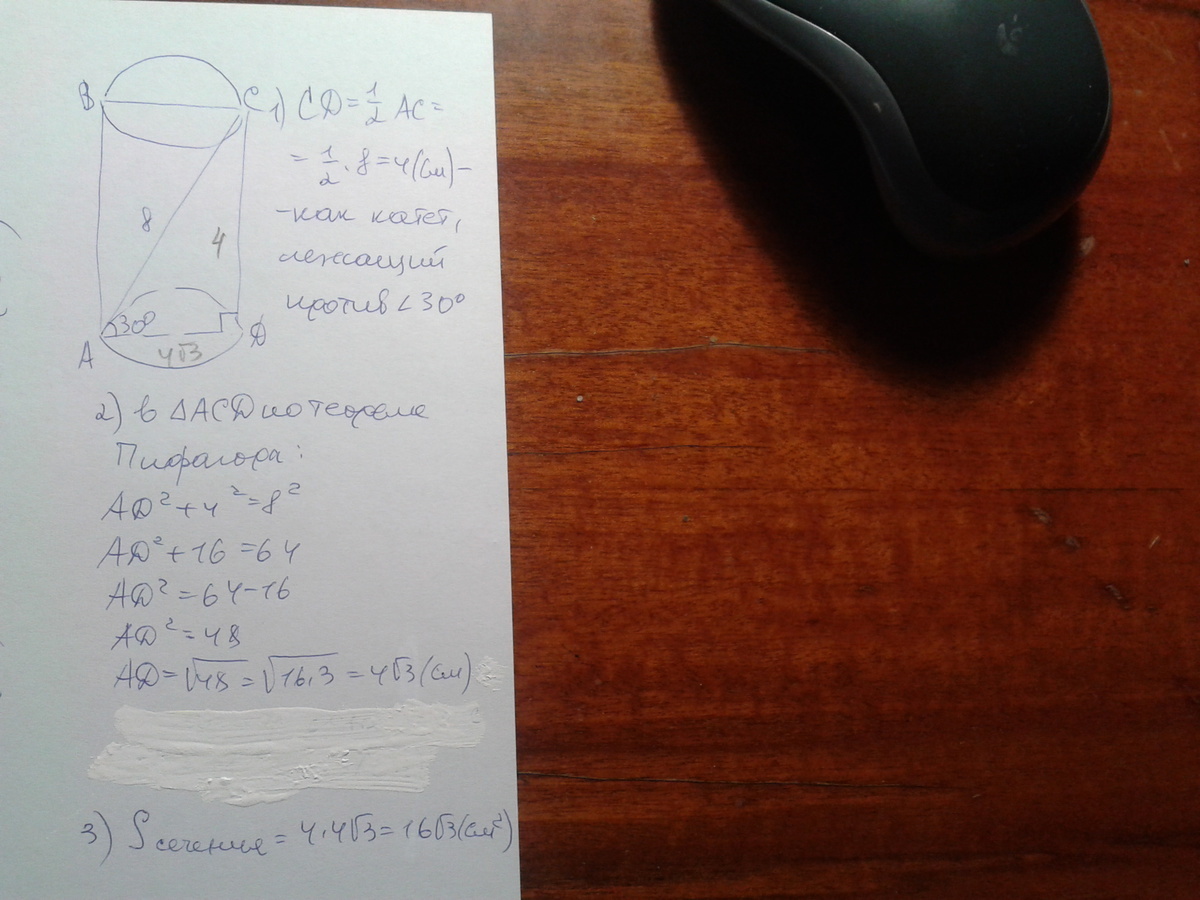 B
C
8
4
30°
A
D
4√3
1) CD = 1/2 AC =
= 1/2 · 8 = 4 (см) –
– как катет,
лежащий
против ∠30°
2) в △ACD по теореме
Пифагора:
AD² + 4² = 8²
AD² + 16 = 64
AD² = 64 – 16
AD² = 48
AD = √48 = √16·3 = 4√3 (см)
3) Sсечения = 4·4√3 = 16√3 (см²)